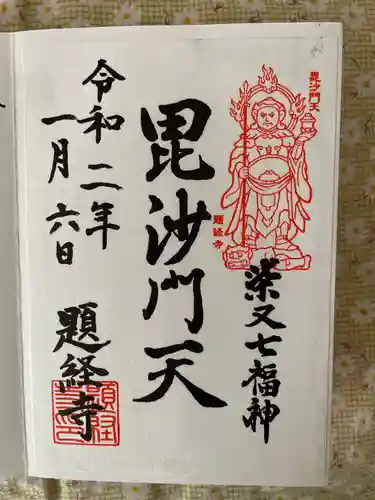 毘沙門天
題経寺
柴又七福神
毘沙門天
令和二年
一月六日
題経寺